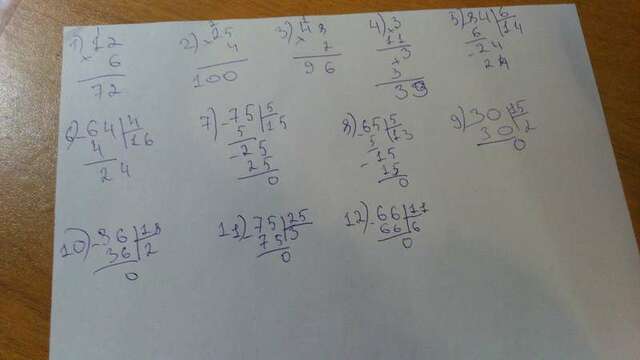 1) 12 2) 25 3) 48 4) 3 5) 84 6
× 6 × 4 × 2 11 6 14
72 100 96 3 - 24
3 24
33
6) - 64 4 7) - 75 5 8) - 65 5 9) 30 15
4 16 5 15 5 13 30 2
24 - 25 - 15 0
25 15
0 0
10) - 36 18 11) - 75 25 12) - 66 11
36 2 75 3 66 6
0 0 0